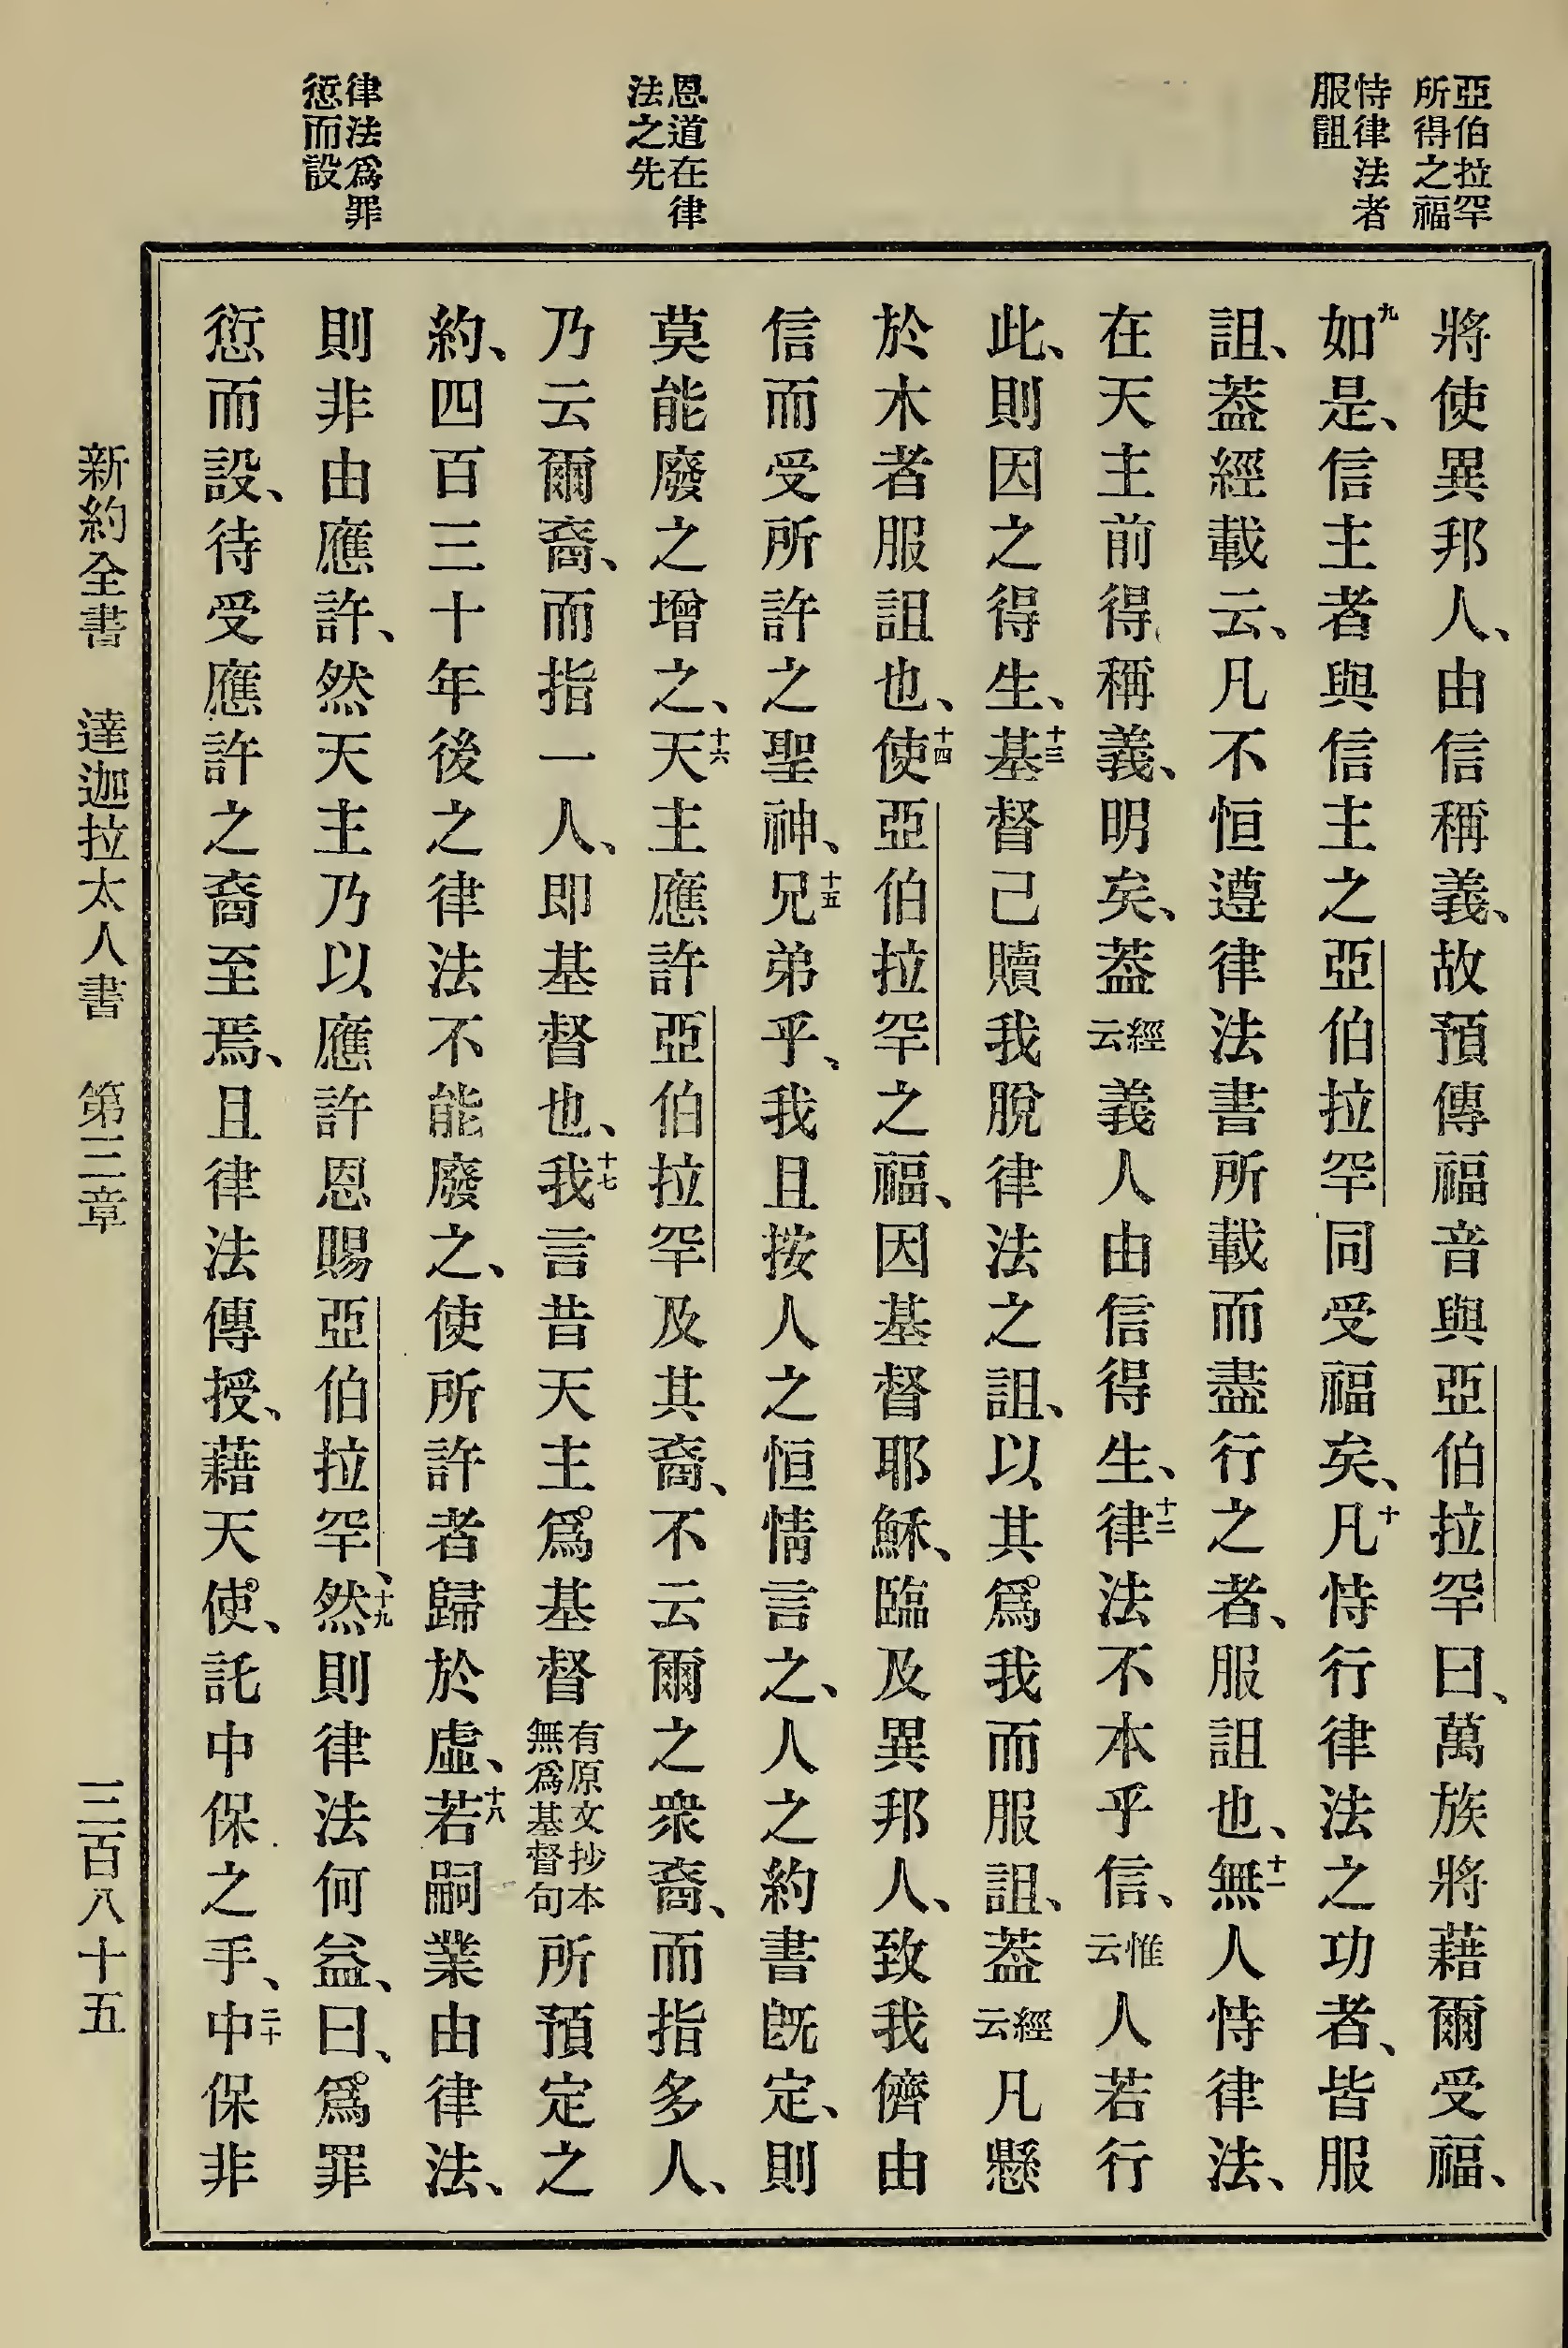 亞伯拉罕
所得之福
恃律法者
服詛
恩道在律
法之先
律法爲罪
愆而設
將使異邦人、由信稱義、故預傳福音與亞伯拉罕曰、萬族將藉爾受福、
九如是、信主者與信主之亞伯拉罕同受福矣、十凡恃行律法之功者、皆服
詛、葢經載云、凡不恒遵律法書所載而盡行之者、服詛也、十一無人恃律法、
在天主前得稱義、明矣、葢經云義人由信得生、十二律法不本乎信、惟云人若行
此、則因之得生、十三基督己贖我脫律法之詛、以其爲我而服詛、葢經云凡懸
於木者服詛也、十四使亞伯拉罕之福、因基督耶穌、臨及異邦人、致我儕由
信而受所許之聖神、十五兄弟乎、我且按人之恒情言之、人之約書旣定、則
莫能廢之增之、十六天主應許亞伯拉罕及其裔、不云爾之衆裔、而指多人、
乃云爾裔、而指一人、即基督也、十七我言昔天主爲基督有原文抄本無爲基督句所預定之
約、四百三十年後之律法不能廢之、使所許者歸於虛、十八若嗣業由律法、
則非由應許、然天主乃以應許恩賜亞伯拉罕、十九然則律法何益、曰、爲罪
愆而設、待受應許之裔至焉、且律法傳授、藉天使、託中保之手、二十中保非
新約全書 達迦拉太人書 第三章 三百八十五